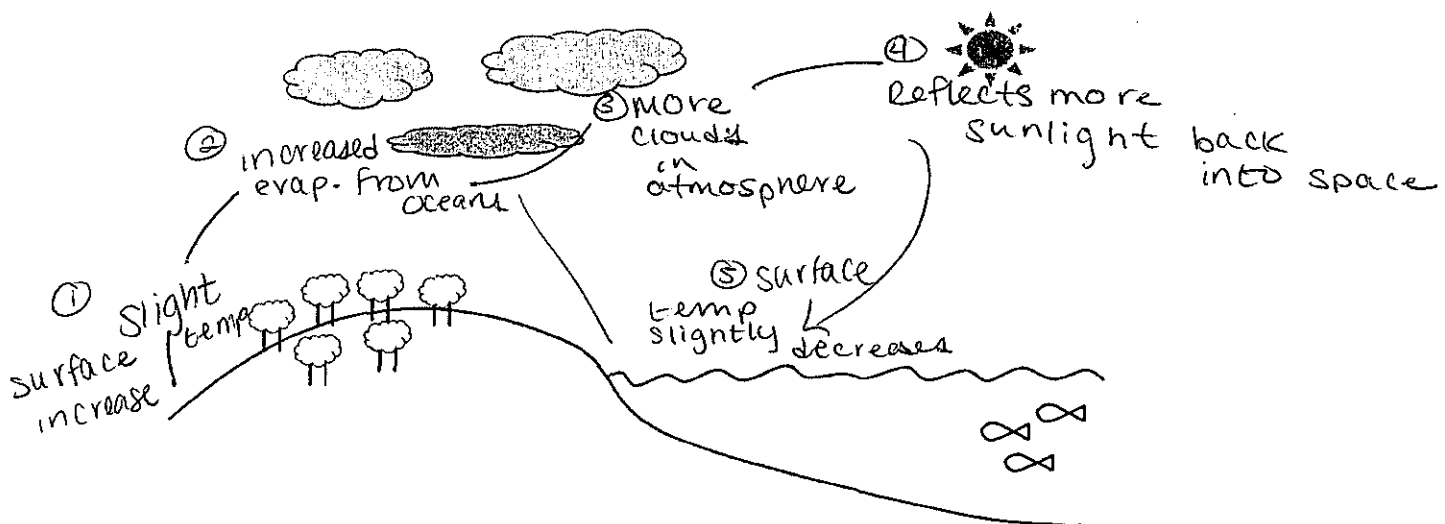 ①
slight
temp
surface
increase
② increased
evap. from
oceans
③ more
clouds
in
atmosphere
④
Reflects more
sunlight back
into space
⑤ surface
temp
slightly decreases